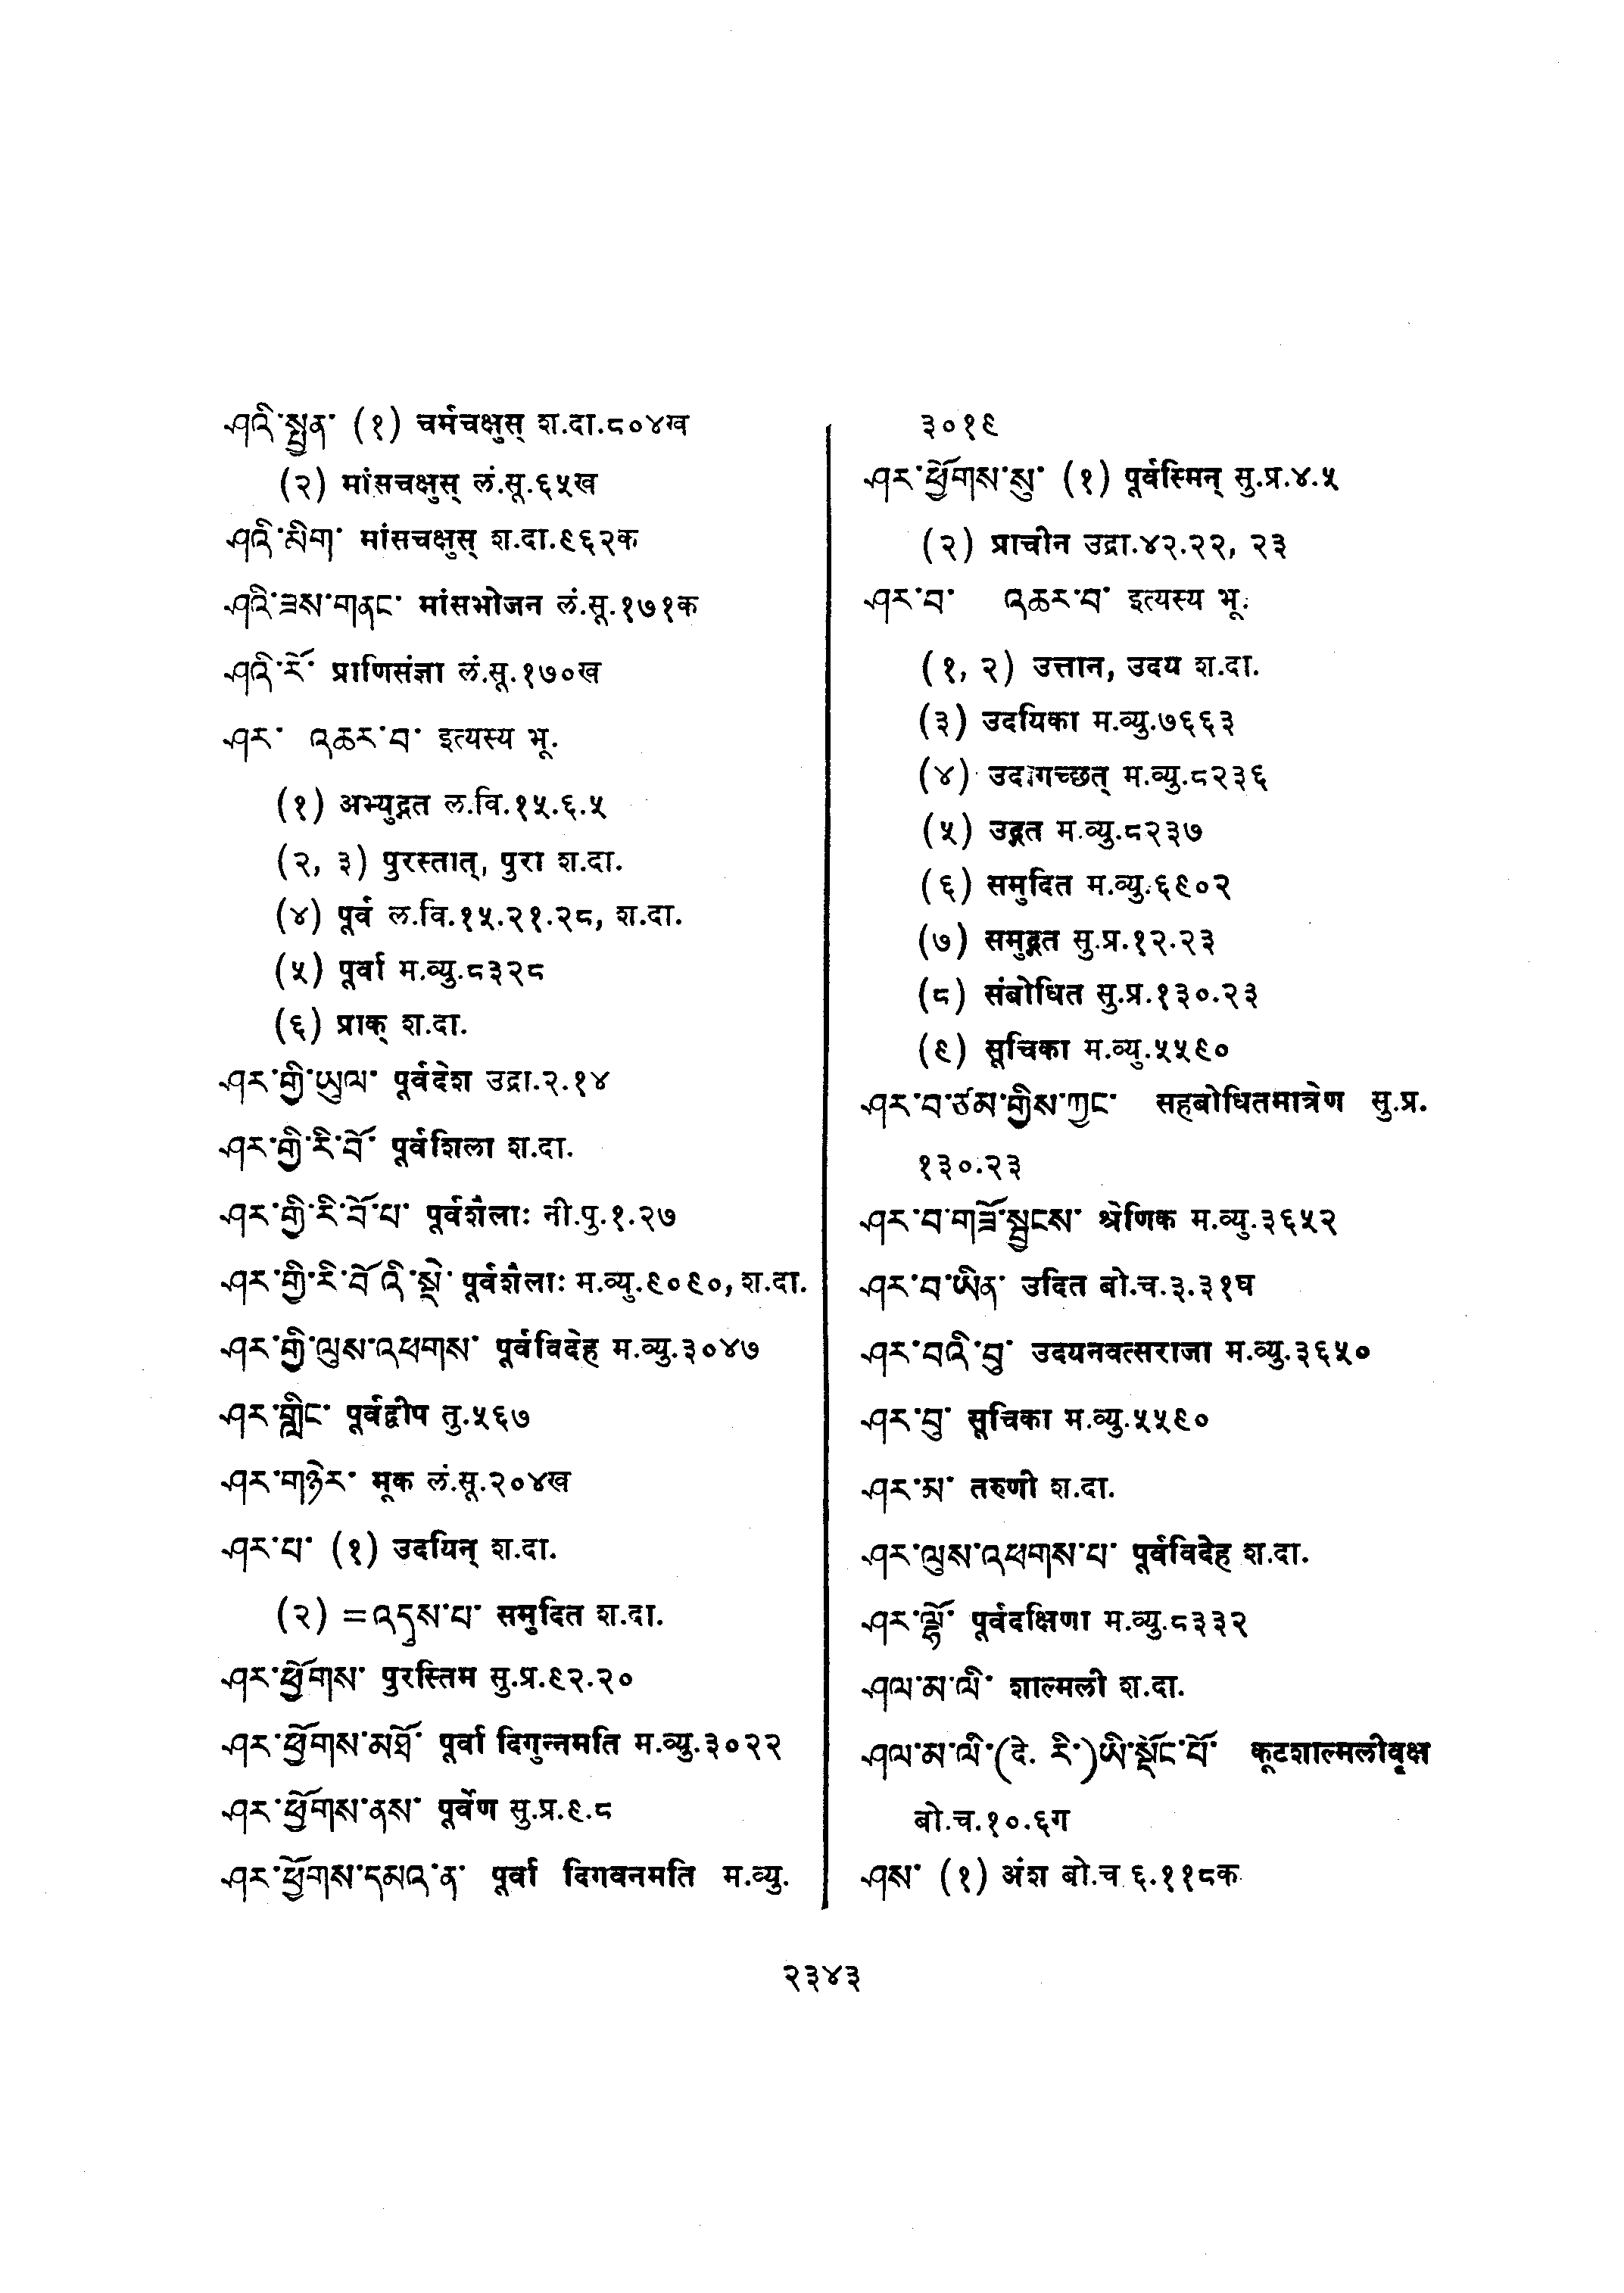 ཤའི་སྤྱན་ (१) चर्मचक्षुस् श.दा.८०४ख
(२) मांसचक्षुस् लं.सू.६५ख
ཤའི་མིག་ मांसचक्षुस् श.दा.९६२क
ཤའི་ཟས་གནང་ मांसभोजन लं.सू.१७१क
ཤའི་རོ་ प्राणिसंज्ञा लं.सू.१७०ख
ཤར་ འཆར་བ་ इत्यस्य भू.
(१) अभ्युद्गत ल.वि.१५.६.५
(२, ३) पुरस्तात्, पुरा श.दा.
(४) पूर्व ल.वि.१५.२१.२८, श.दा.
(५) पूर्वा म.व्यु.८३२८
(६) प्राक् श.दा.
ཤར་གྱི་ཡུལ་ पूर्वदेश उद्रा.२.१४
ཤར་གྱི་རི་བོ་ पूर्वशिला श.दा.
ཤར་གྱི་རི་བོ་པ་ पूर्वशैलाः नी.पु.१.२७
ཤར་གྱི་རི་བོའི་སྡེ་ पूर्वशैलाः म.व्यु.९०९०, श.दा.
ཤར་གྱི་ལུས་འཕགས་ पूर्वविदेह म.व्यु.३०४७
ཤར་གླིང་ पूर्वद्वीप तु.५६७
ཤར་གཉེར་ मूक लं.सू.२०४ख
ཤར་པ་ (१) उदयिन् श.दा.
(२) =འདུས་པ་ समुदित श.दा.
ཤར་ཕྱོགས་ पुरस्तिम सु.प्र.९२.२०
ཤར་ཕྱོགས་མཐོ་ पूर्वा दिगुन्नमति म.व्यु.३०२२
ཤར་ཕྱོགས་ནས་ पूर्वेण सु.प्र.९.८
ཤར་ཕྱོགས་དམའ་ན་ पूर्वा दिगवनमति म.व्यु.
३०१९
ཤར་ཕྱོགས་སུ་ (१) पूर्वस्मिन् सु.प्र.४.५
(२) प्राचीन उद्रा.४२.२२, २३
ཤར་བ་ འཆར་བ་ इत्यस्य भू.
(१, २) उत्तान, उदय श.दा.
(३) उदयिका म.व्यु.७६६३
(४) उदागच्छत् म.व्यु.८२३६
(५) उद्गत म.व्यु.८२३७
(६) समुदित म.व्यु.६९०२
(७) समुद्गत सु.प्र.१२.२३
(८) संबोधित सु.प्र.१३०.२३
(९) सूचिका म.व्यु.५५९०
ཤར་བ་ཙམ་གྱིས་ཀྱང་ सहबोधितमात्रेण सु.प्र.
१३०.२३
ཤར་བ་གཟོ་སྦྱངས་ श्रेणिक म.व्यु.३६५२
ཤར་བ་ཡིན་ उदित बो.च.३.३१घ
ཤར་བའི་བུ་ उदयनवत्सराजा म.व्यु.३६५०
ཤར་བུ་ सूचिका म.व्यु.५५९०
ཤར་མ་ तरुणी श.दा.
ཤར་ལུས་འཕགས་པ་ पूर्वविदेह श.दा.
ཤར་ལྷོ་ पूर्वदक्षिणा म.व्यु.८३३२
ཤལ་མ་ལི་ शाल्मली श.दा.
ཤལ་མ་ལི་(དེ. རི་)ཡི་སྡོང་པོ་ कूटशाल्मलीवृक्ष
बो.च.१०.६ग
ཤས་ (१) अंश बो.च.६.११८क
२३४३